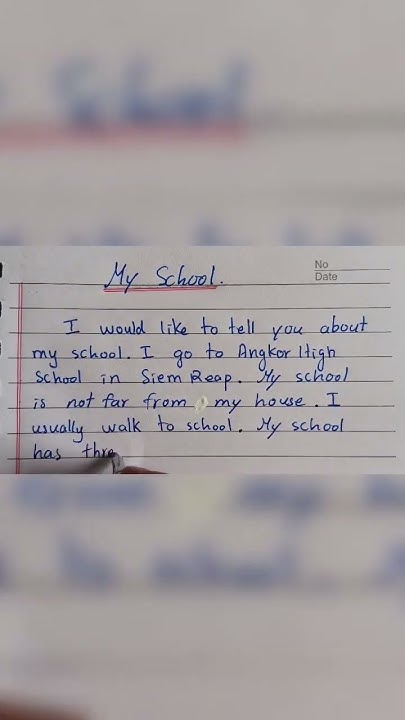 My School.
No
Date
I would like to tell you about
my school. I go to Angkor High
School in Siem Reap. My school
is not far from my house. I
usually walk to school. My school
has thre